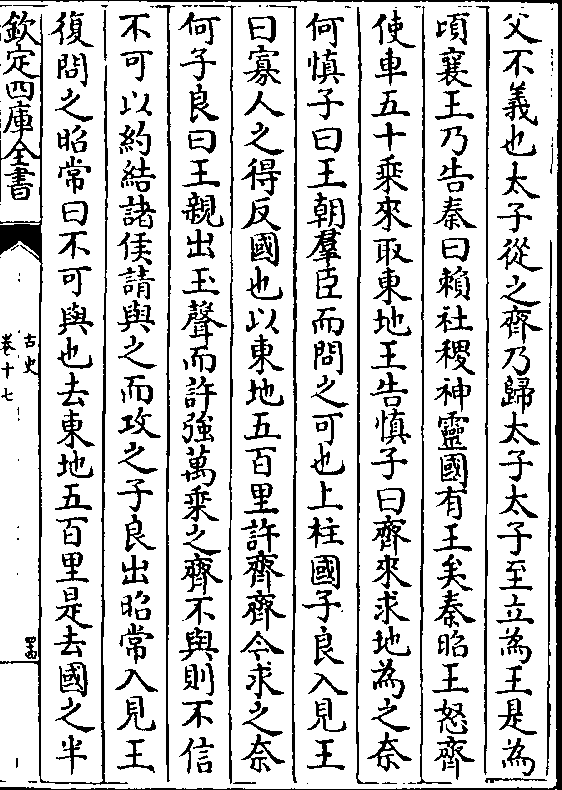 父不義也太子從之齊乃歸太子太子至立為王是為
頃襄王乃告秦曰賴社稷神靈國有王矣秦昭王怒齊
使車五十乘來取東地王告慎子曰齊來求地為之奈
何慎子曰王朝羣臣而問之可也上柱國子良入見王
曰寡人之得反國也以東地五百里許齊齊令求之奈
何子良曰王親出玉聲而許強萬乘之齊不與則不信
不可以約結諸侯請與之而攻之子良出昭常入見王
復問之昭常曰不可與也去東地五百里是去國之半
欽定四庫全書
古史
卷十七